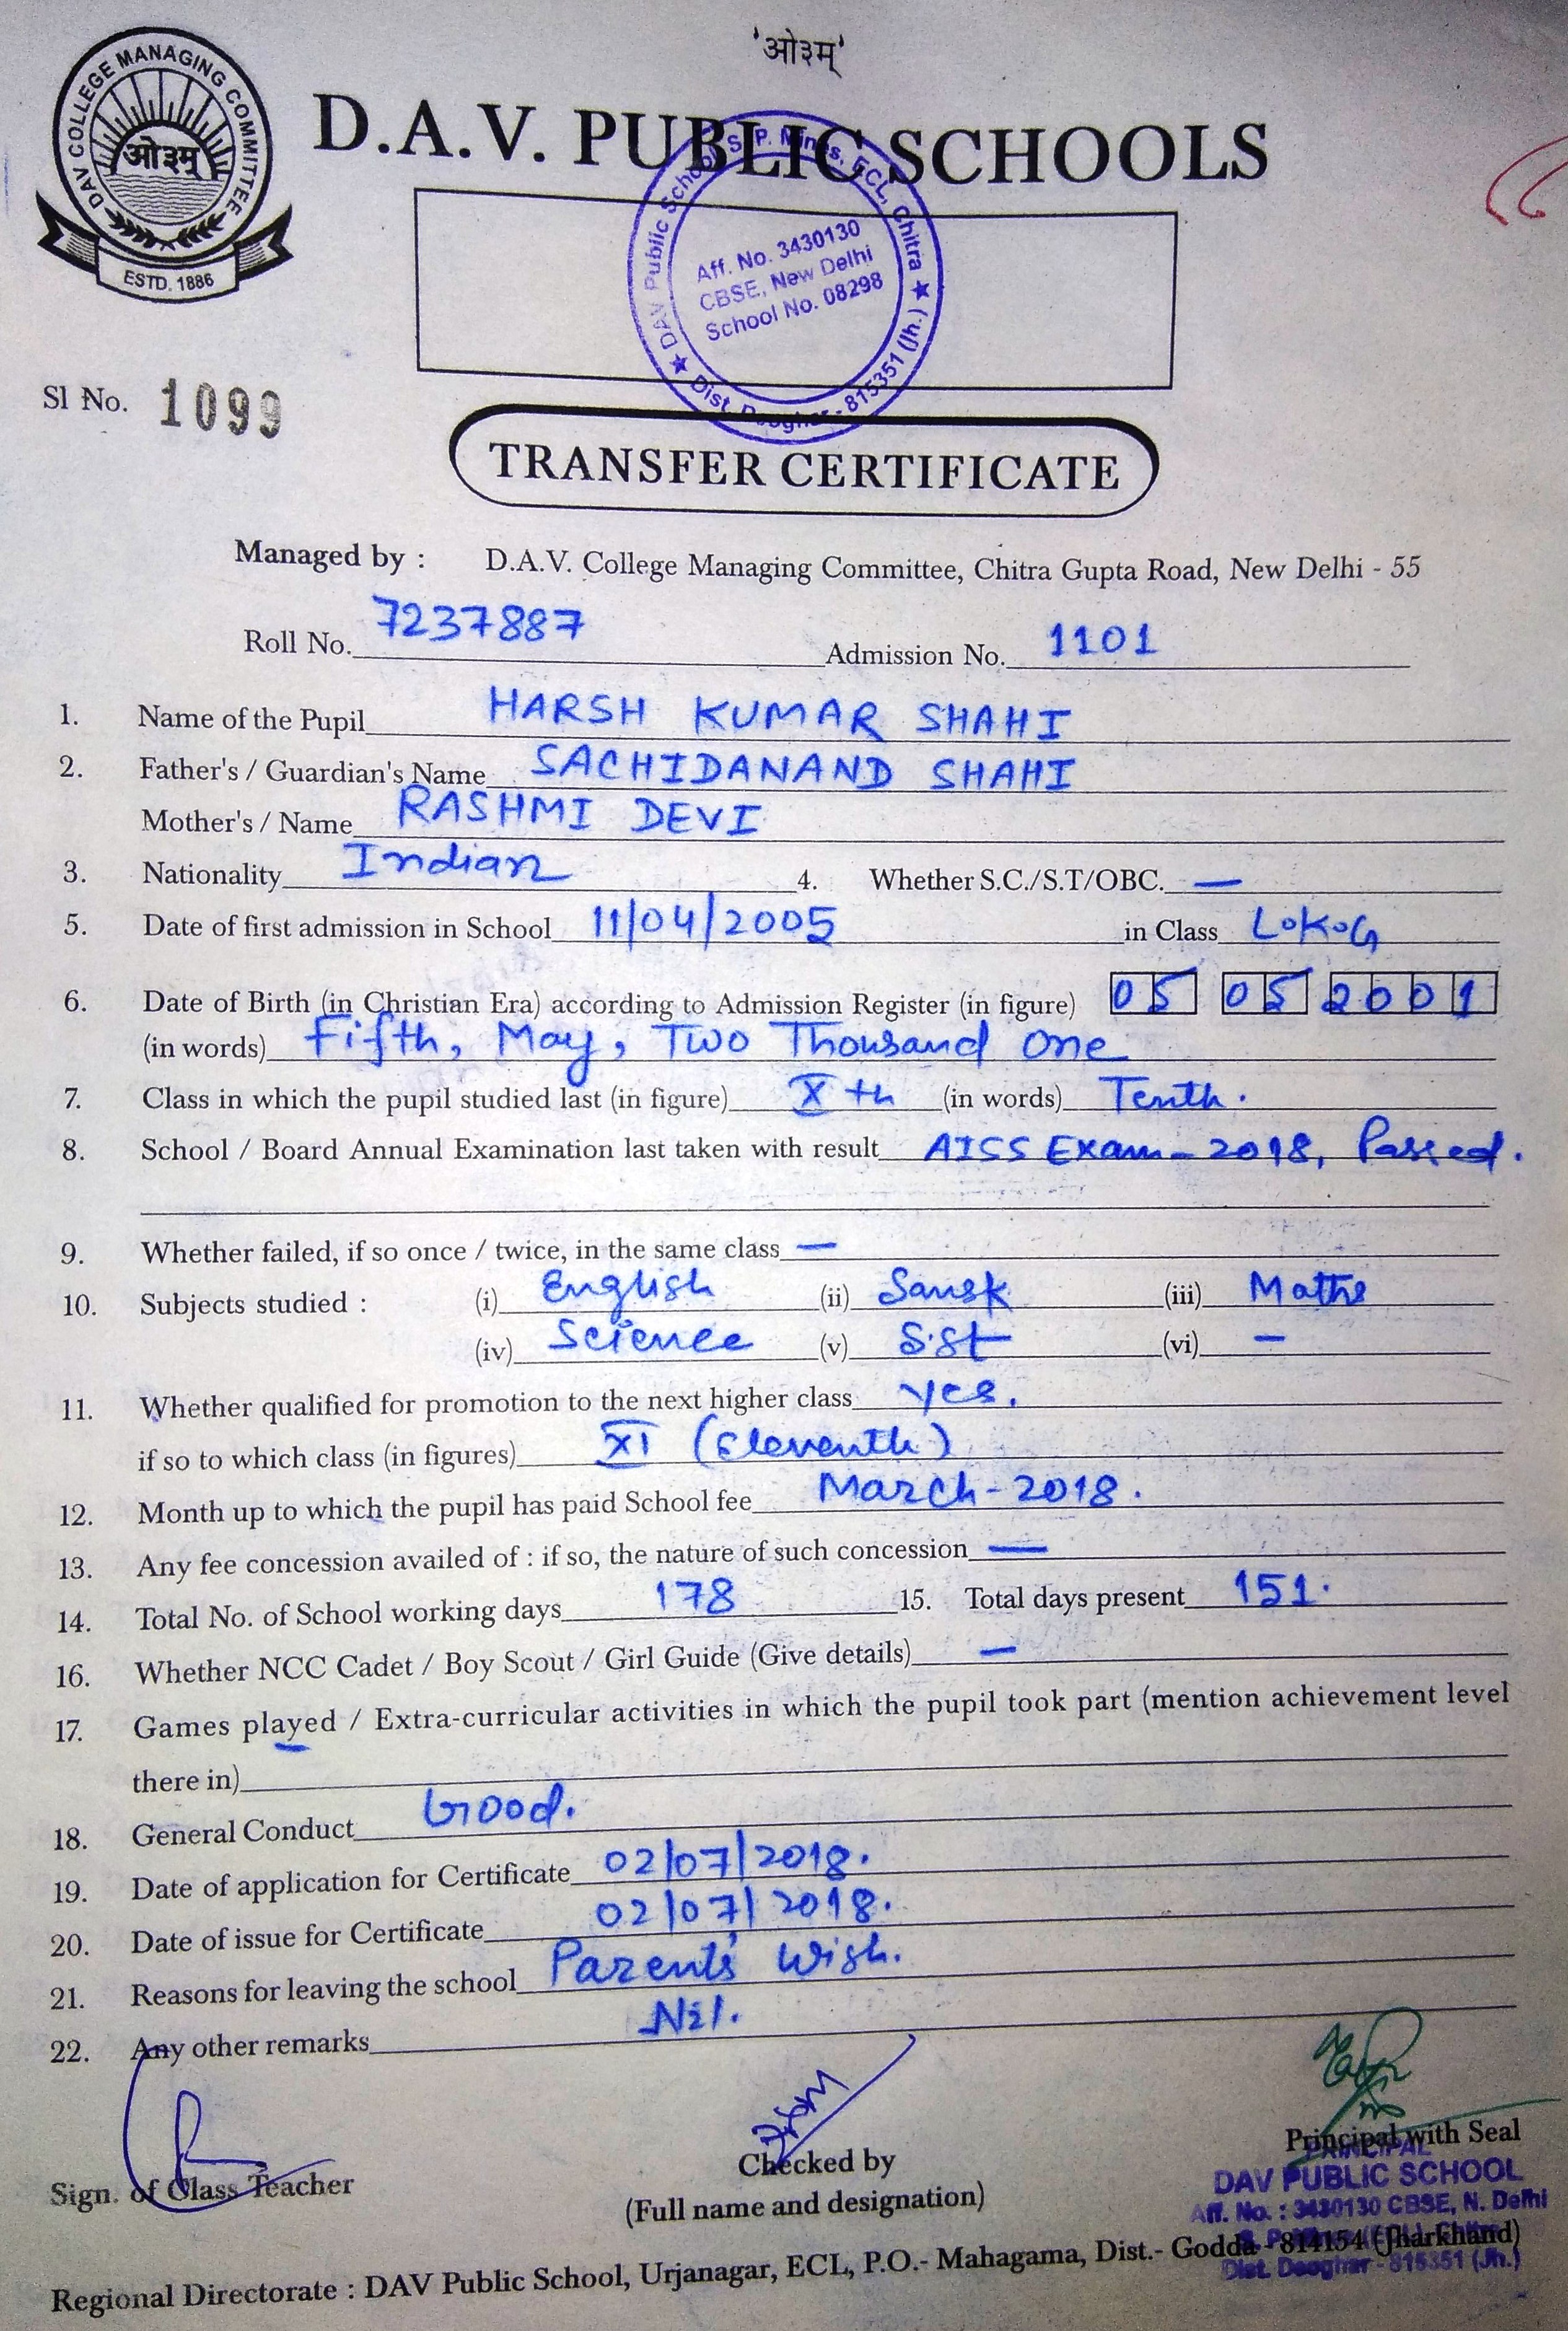 'ओ३म्'
DAV COLLEGE MANAGING COMMITTEE
ओ३म्
ESTD. 1886
D.A.V. PUBLIC SCHOOLS
DAV Public School, S. P. Mines, ECL, Chitra ★ Dist. Deoghar - 815351 (Jh.) ★
Aff. No. 3430130
CBSE, New Delhi
School No. 08298
Sl No. 1099
TRANSFER CERTIFICATE
Managed by : D.A.V. College Managing Committee, Chitra Gupta Road, New Delhi - 55
Roll No. 7237887 Admission No. 1101
1. Name of the Pupil HARSH KUMAR SHAHI
2. Father's / Guardian's Name SACHIDANAND SHAHI
Mother's / Name RASHMI DEVI
3. Nationality Indian 4. Whether S.C./S.T/OBC. —
5. Date of first admission in School 11/04/2005 in Class LoKoG
6. Date of Birth (in Christian Era) according to Admission Register (in figure) 05 05 2001
(in words) Fifth, May, Two Thousand One
7. Class in which the pupil studied last (in figure) Xth (in words) Tenth.
8. School / Board Annual Examination last taken with result AISS Exam - 2018, Passed.
9. Whether failed, if so once / twice, in the same class —
10. Subjects studied : (i) English (ii) Sansk (iii) Maths
(iv) Science (v) S.St (vi) —
11. Whether qualified for promotion to the next higher class yes.
if so to which class (in figures) XI (Eleventh)
12. Month up to which the pupil has paid School fee March - 2018.
13. Any fee concession availed of : if so, the nature of such concession —
14. Total No. of School working days 178 15. Total days present 151.
16. Whether NCC Cadet / Boy Scout / Girl Guide (Give details) —
17. Games played / Extra-curricular activities in which the pupil took part (mention achievement level
there in) —
18. General Conduct Good.
19. Date of application for Certificate 02/07/2018.
20. Date of issue for Certificate 02/07/2018.
21. Reasons for leaving the school Parent's Wish.
22. Any other remarks Nil.
Sign. of Class Teacher
Checked by
(Full name and designation)
Principal with Seal
PRINCIPAL
DAV PUBLIC SCHOOL
Aff. No. : 3430130 CBSE, N. Delhi
Dist. Deoghar - 815351 (Jh.)
Regional Directorate : DAV Public School, Urjanagar, ECL, P.O.- Mahagama, Dist.- Godda - 814154 (Jharkhand)